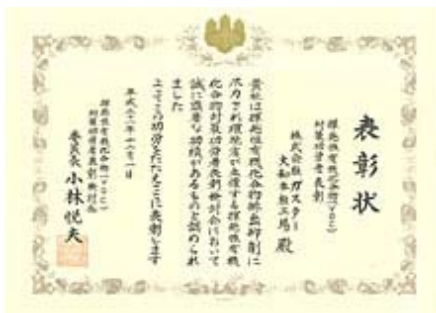 表彰状
揮発性有機化合物(VOC)
対策功労者表彰
株式会社ガスター
大和本社工場 殿
貴社は揮発性有機化合物排出抑制に
尽力され環境省が主催する揮発性有機
化合物対策功労者表彰検討会において
誠に顕著な功績があるものと認められ
ました
よってその功労をたたえここに表彰します
平成二十一年十二月一日
揮発性有機化合物(VOC)
対策功労者表彰検討会
委員長 小林悦夫